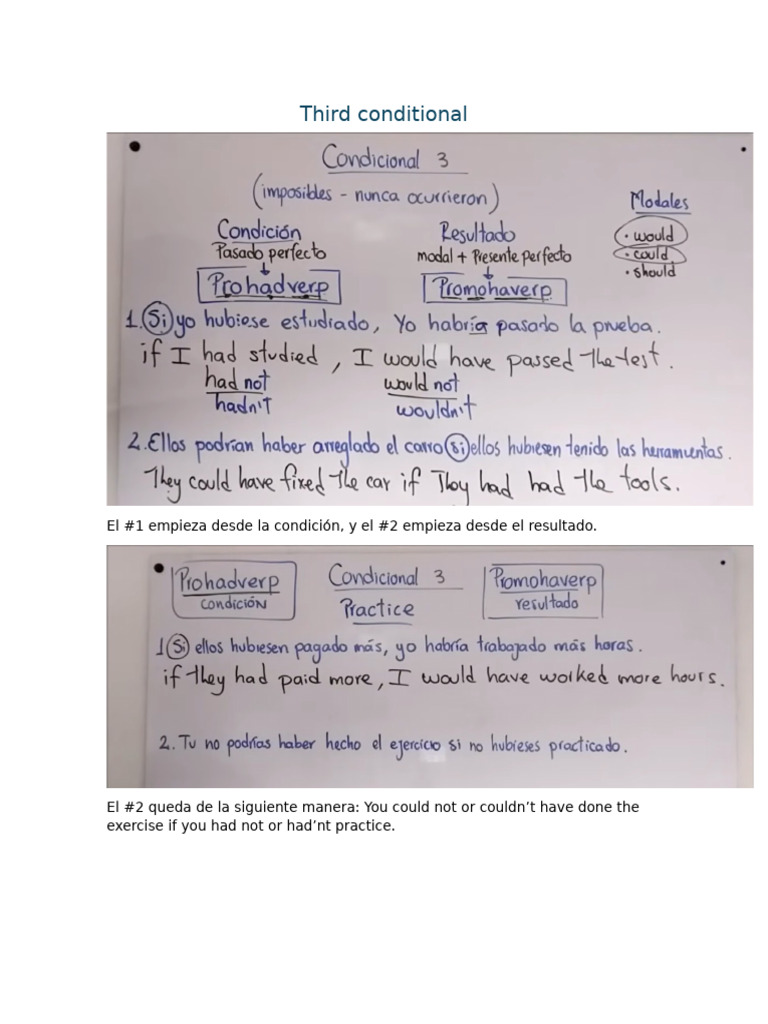 Third conditional
Condicional 3
(imposibles - nunca ocurrieron)
Modales
Condición Resultado
• would
Pasado perfecto modal + Presente perfecto
• could
• should
Prohadverp Promohaverp
1. Si yo hubiese estudiado, Yo habría pasado la prueba.
if I had studied, I would have passed the test.
had not would not
hadn't wouldn't
2. Ellos podrían haber arreglado el carro si ellos hubiesen tenido las herramientas.
They could have fixed the car if They had had the tools.
El #1 empieza desde la condición, y el #2 empieza desde el resultado.
Prohadverp Condicional 3 Promohaverp
condición Practice resultado
1 Si ellos hubiesen pagado más, yo habría trabajado más horas.
if They had paid more, I would have worked more hours.
2. Tu no podrías haber hecho el ejercicio si no hubieses practicado.
El #2 queda de la siguiente manera: You could not or couldn’t have done the
exercise if you had not or had’nt practice.